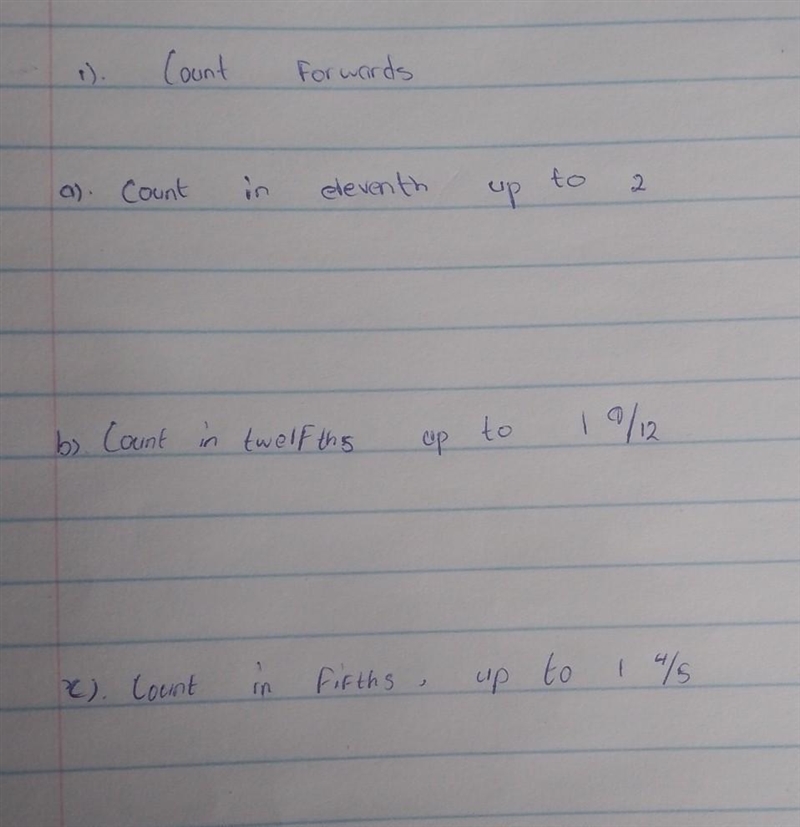 1). Count Forwards
a). Count in eleventh up to 2
b) Count in twelfths up to 1 9/12
c). Count in Fifths, up to 1 4/5